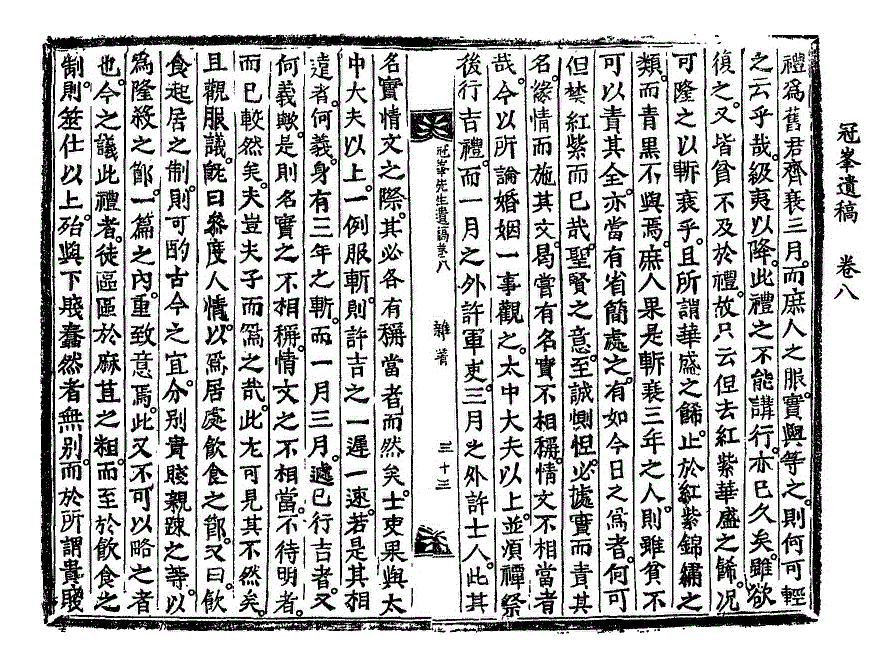 冠峯遺稿　卷八
禮爲舊君齊衰三月而庶人之服實與等之則何可輕
之云乎哉級夷以降此禮之不能講行亦已久矣雖欲
復之又皆貧不及於禮故只云但去紅紫華盛之餙况
可隆之以斬衰乎且所謂華盛之餙止於紅紫錦繡之
類而青黑不與焉庶人果是斬衰三年之人則雖貧不
可以責其全亦當有省簡處之有如今日之爲者何可
但焚紅紫而已哉聖賢之意至誠惻怛必據實而責其
名緣情而施其文曷嘗有名實不相稱情文不相當者
哉今以所論婚姻一事觀之太中大夫以上並須禫祭
後行吉禮而一月之外許軍吏三月之外許士人此其
冠峯先生遺稿卷八　雜著　三十三
名實情文之際其必各有稱當者而然矣士吏果與太
中大夫以上一例服斬則許吉之一遲一速若是其相
遠者何義身有三年之斬而一月三月遽已行吉者又
何義歟是則名實之不相稱情文之不相當不待明者
而已較然矣夫豈夫子而爲之哉此尤可見其不然矣
且觀服議旣曰參度人情以爲居處飲食之節又曰飲
食起居之制則可酌古今之宜分別貴賤親踈之等以
爲隆殺之節一篇之內重致意焉此又不可以略之者
也今之議此禮者徒區區於麻苴之粗而至於飲食之
制則筮仕以上殆與下賤蠢然者無別而於所謂貴賤